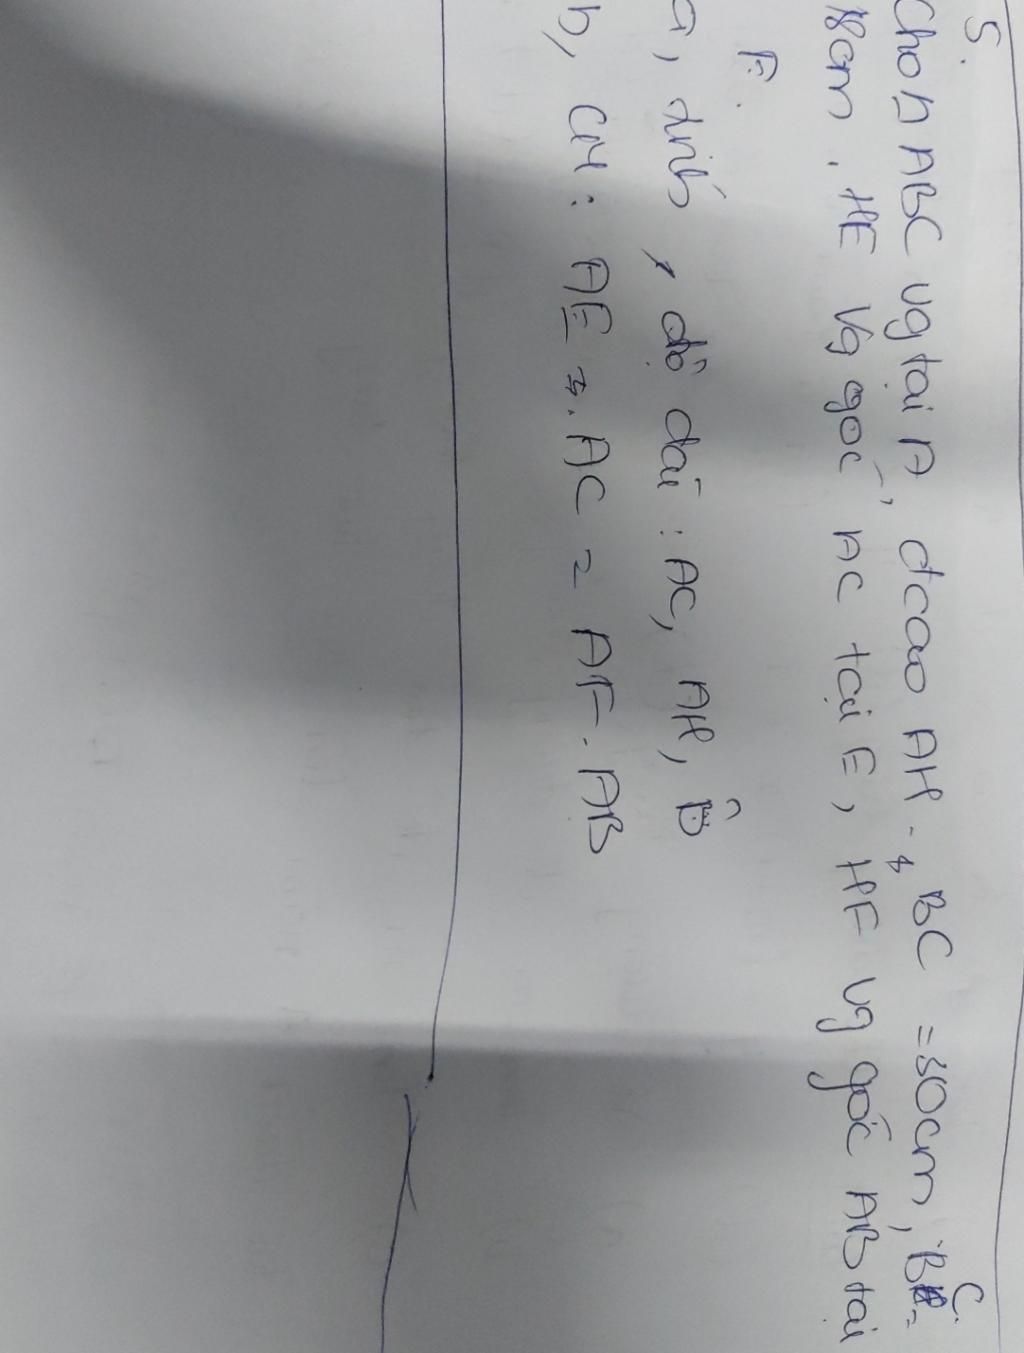 5.
Cho Δ ABC vg tại A, đcao AH. BC = 30cm,
18cm. HE vg góc AC tại E, HF vg góc AB tại
F.
a, tính độ dài: AC, AH, B̂
b, CM: AE . AC = AF . AB